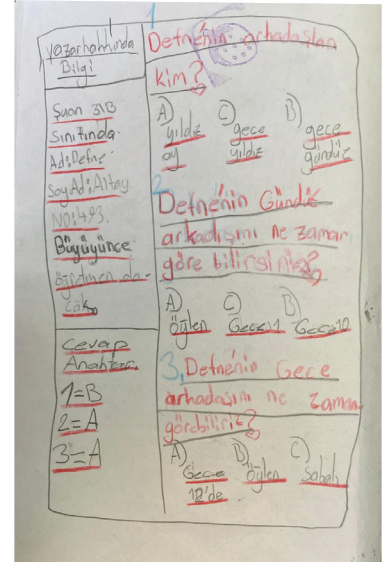 Yazar hakkında
Bilgi
Şuan 3\B
Sınıfında
Ad: Defne
SoyAd: Altay
NO: 493.
Büyüyünce
öğretmen ola-
cak.
Cevap
Anahtarı
1=B
2=A
3=A
1
Defne'nin arkadaşları
kim?
A) C) B)
yıldız gece gece
ay yıldız gündüz
2
Defne'nin Gündüz
arkadaşını ne zaman
göre bilirsiniz?
A) C) B)
öğlen Gece 1 Gece 10
3, Defne'nin Gece
arkadaşını ne zaman
görebiliriz?
A) B) C)
Gece öğlen Sabah
12'de